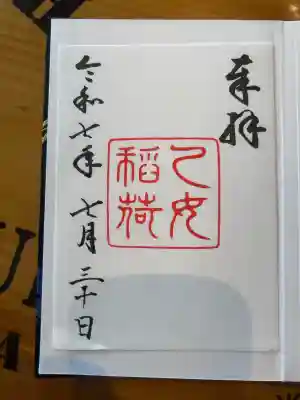 奉拝
乙女
稲荷
令和七年 七月三十日